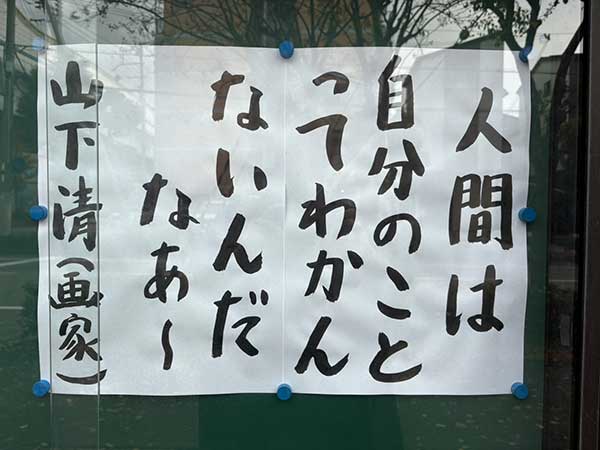 人間は
自分のこと
ってわかん
ないんだ
なあ〜
山下清(画家)